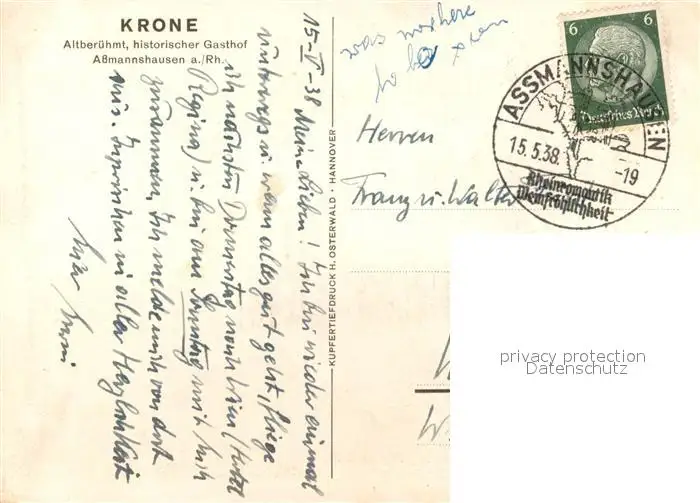 KRONE
Altberühmt, historischer Gasthof
Aßmannshausen a./Rh.
15-V-38 Meine Lieben! Ich bin wieder einmal
unterwegs u. wenn alles gut geht, fliege
ich nächsten Donnerstag nach Wien (Hotel
Regina) u. bin am Sonntag mit Euch
zusammen. Ich melde mich von dort
aus. Inzwischen in aller Herzlichkeit
KUPFERTIEFDRUCK H. OSTERWALD · HANNOVER
was nowhere
to be seen
6 6
Deutsches Reich
ASSMANNSHAUSEN
15.5.38. -19
Rheinromantik
Weinfröhlichkeit
Herren
Franz u. Walter
privacy protection
Datenschutz